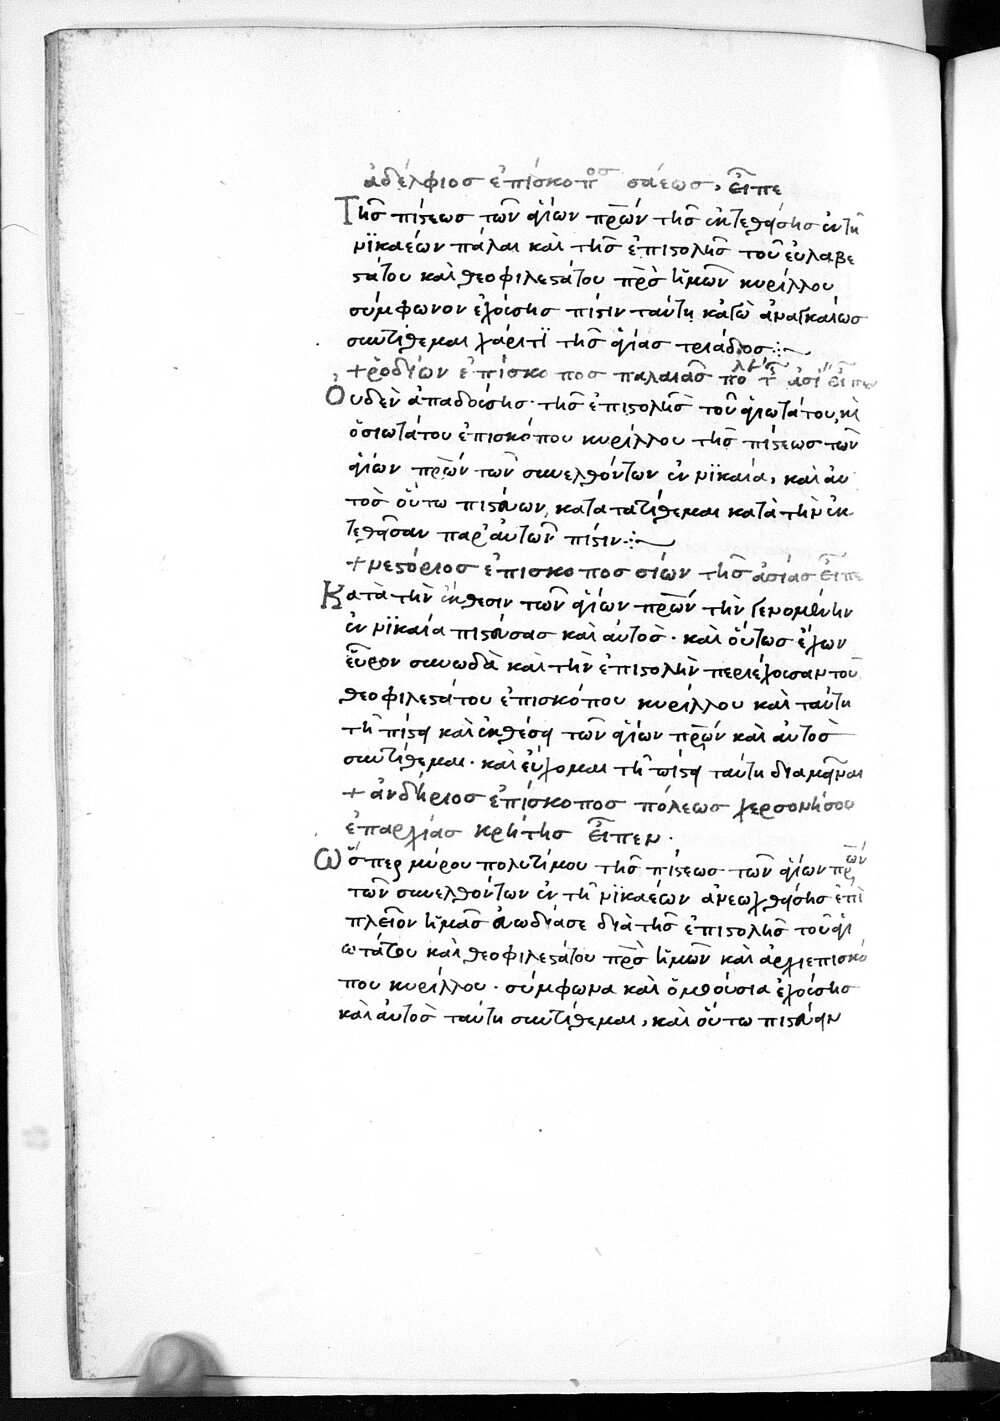 ἀδέλφιος ἐπίσκοπος σάεως, εἶπε
Τῆς πίστεως τῶν ἁγίων πρων τῆς ἐκτεθείσης ἐν τῆ
νϊκαέων πάλαι καὶ τῆς ἐπιστολῆς τοῦ εὐλαβε
στάτου καὶ θεοφιλεστάτου προς ἡμῶν κυρίλλου
σύμφωνον ἐχούσης πίστιν ταύτη κἀγὼ ἀναγκαίως
συντίθεμαι χάριτϊ τῆς ἁγίας τριάδος
+ ῥοδίων ἐπίσκοπος παλαιᾶς πο τ ἀσί εἶπεν
Οὐδὲν ἀπαδούσης τῆς ἐπιστολῆς τοῦ ἁγιωτάτου, κὶ
ὁσιωτάτου ἐπισκόπου κυρίλλου τῆς πίστεως τῶν
ἁγίων πρων τῶν συνελθόντων ἐν νϊκαία, καὶ αὐ
τὸς οὕτω πιστεύων, κατατατίθεμαι κατὰ τὴν ἐκ
τεθεῖσαν παρ' αὐτῶν πίστιν
+ μεστόριος ἐπίσκοπος σιών τῆς ἀσίας εἶπε
Κατὰ τὴν ἔκθεσιν τῶν ἁγίων πρων τὴν γενομένην
ἐν νϊκαία πιστεύσας καὶ αὐτὸς · καὶ οὕτως ἔχων
εὗρον συνωδὰ καὶ τὴν ἐπιστολὴν περιέχουσαν τοῦ
θεοφιλεστάτου ἐπισκόπου κυρίλλου καὶ ταύτη
τῆ πίστει καὶ ἐκθέσει τῶν ἁγίων πρων καὶ αὐτὸς
συντίθεμαι · καὶ εὔχομαι τῆ πίστει ταύτη διαμεῖναι
+ ἀνδήριος ἐπίσκοπος πόλεως χερσονήσου
ἐπαρχίας κρήτης εἶπεν ·
Ὥσπερ μύρου πολυτίμου τῆς πίστεως τῶν ἁγίων πρων
τῶν συνελθόντων ἐν τῆ νϊκαέων ἀνεωχθείσης ἐπὶ
πλεῖον ἡμᾶς εὐωδίασε διὰ τῆς ἐπιστολῆς τοῦ ἁγι
ωτάτου καὶ θεοφιλεστάτου προς ἡμῶν καὶ ἀρχιεπισκό
που κυρίλλου · σύμφωνα καὶ ὁμοούσια ἐχούσης
καὶ αὐτὸς ταύτη συντίθεμαι, καὶ οὕτω πιστεύειν